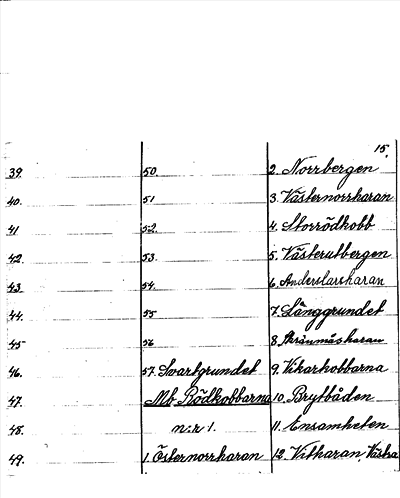 15.
39.
40.
41
42.
43.
44.
45
46.
47.
48.
49.
50.
51
52.
53.
54.
55
56
57. Svartgrundet
Mb. Rödkobbarna
n:r 1.
1. Östernorrharan
2. Norrbergen
3. Västernorrharan
4. Storrödkobb
5. Västerutbergen
6. Anderslarsharan
7. Långgrundet
8. Skrånmåsharan
9. Vikarkobbarna
10. Brytbåden
11. Ensamheten
12. Vitharan, Västra